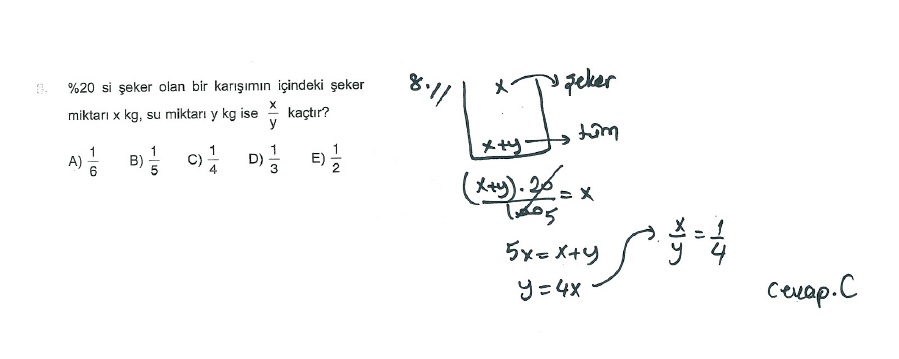 8. %20 si şeker olan bir karışımın içindeki şeker
miktarı x kg, su miktarı y kg ise x/y kaçtır?
A) 1/6 B) 1/5 C) 1/4 D) 1/3 E) 1/2
8.//
x → şeker
x+y → tüm
(x+y).20/100 5 = x
5x = x+y
y = 4x
x/y = 1/4
Cevap.C